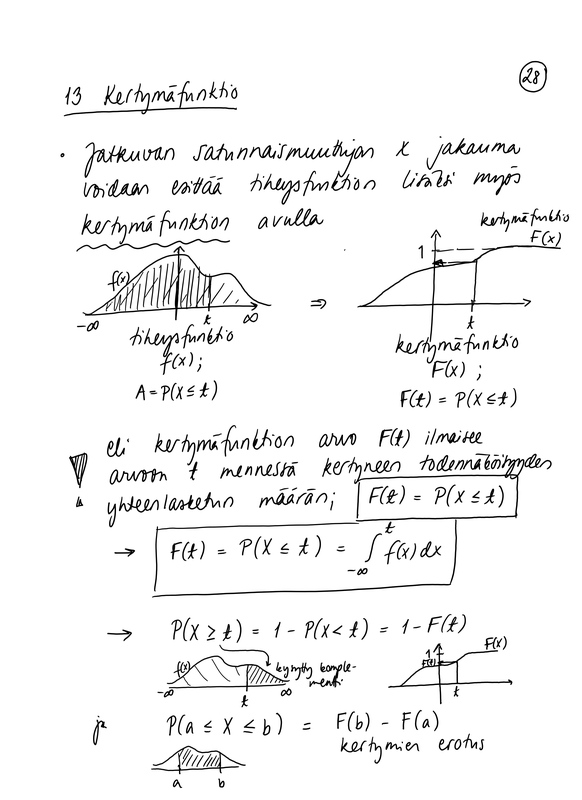 28
13 Kertymäfunktio
• Jatkuvan satunnaismuuttujan X jakauma
voidaan esittää tiheysfunktion lisäksi myös
kertymäfunktion avulla
f(x)
-∞ t ∞
tiheysfunktio
f(x);
A = P(X ≤ t)
⇒
kertymäfunktio
F(x)
1
t
kertymäfunktio
F(x) ;
F(t) = P(X ≤ t)
eli kertymäfunktion arvo F(t) ilmaisee
arvoon t mennessä kertyneen todennäköisyyden
yhteenlasketun määrän; F(t) = P(X ≤ t)
→ F(t) = P(X ≤ t) = ∫_{-∞}^{t} f(x) dx
→ P(X ≥ t) = 1 - P(X < t) = 1 - F(t)
f(x)
kysytty komple-
mentti
-∞ t ∞
1
F(t)
F(x)
t
ja P(a ≤ X ≤ b) = F(b) - F(a)
kertymien erotus
a b